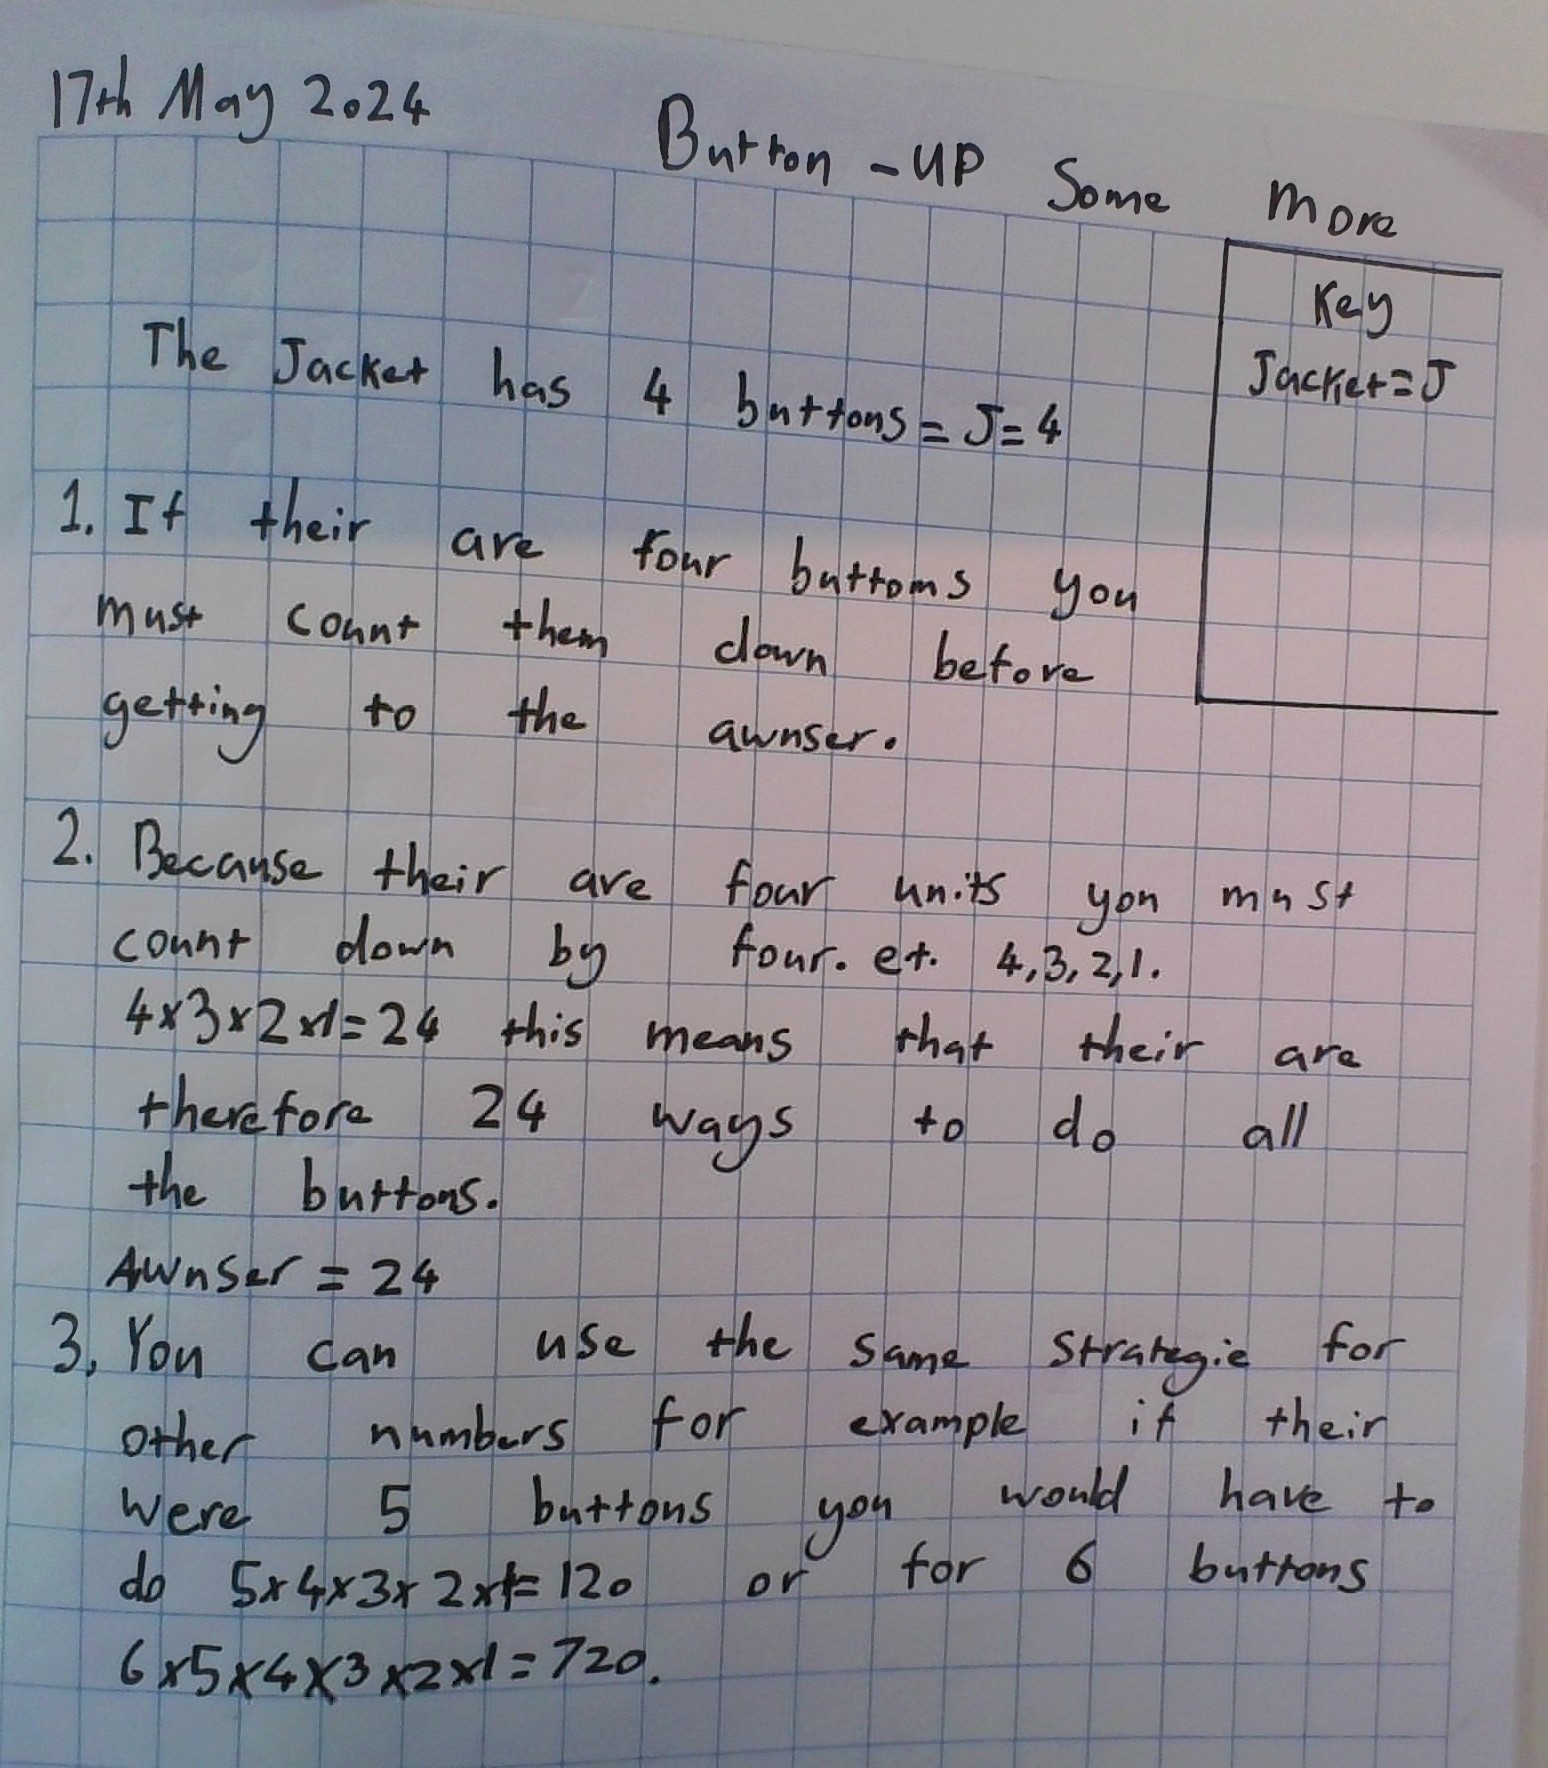 17th May 2024
Button-UP Some More
Key
Jacket=J
The Jacket has 4 buttons=J=4
1. If their are four buttoms you
must count them down before
getting to the awnser.
2. Because their are four units you must
count down by four. et. 4,3,2,1.
4x3x2x1=24 this means that their are
therefore 24 ways to do all
the buttons.
Awnser = 24
3. You can use the same strategie for
other numbers for example if their
were 5 buttons you would have to
do 5x4x3x2x1=120 or for 6 buttons
6x5x4x3x2x1=720.